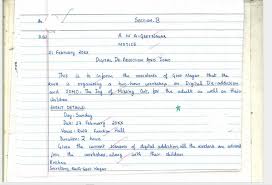 Section B
RWA GEET NAGAR
NOTICE
21 February 20XX
DIGITAL DE ADDICTION AND JOMO
This is to inform the residents of Geet Nagar that the
RWA is organising a two-hour workshop on Digital De-addiction
and JOMO: The Joy of Missing Out for the adults as well as their
children
EVENT DETAILS:
Day: Sunday
Date: 27 February 20XX
Venue: RWA Function Hall
Given the current scenario of digital addiction all the residents are advised
join the workshop along with their children
Krishna
Secretary,
Geet Nagar